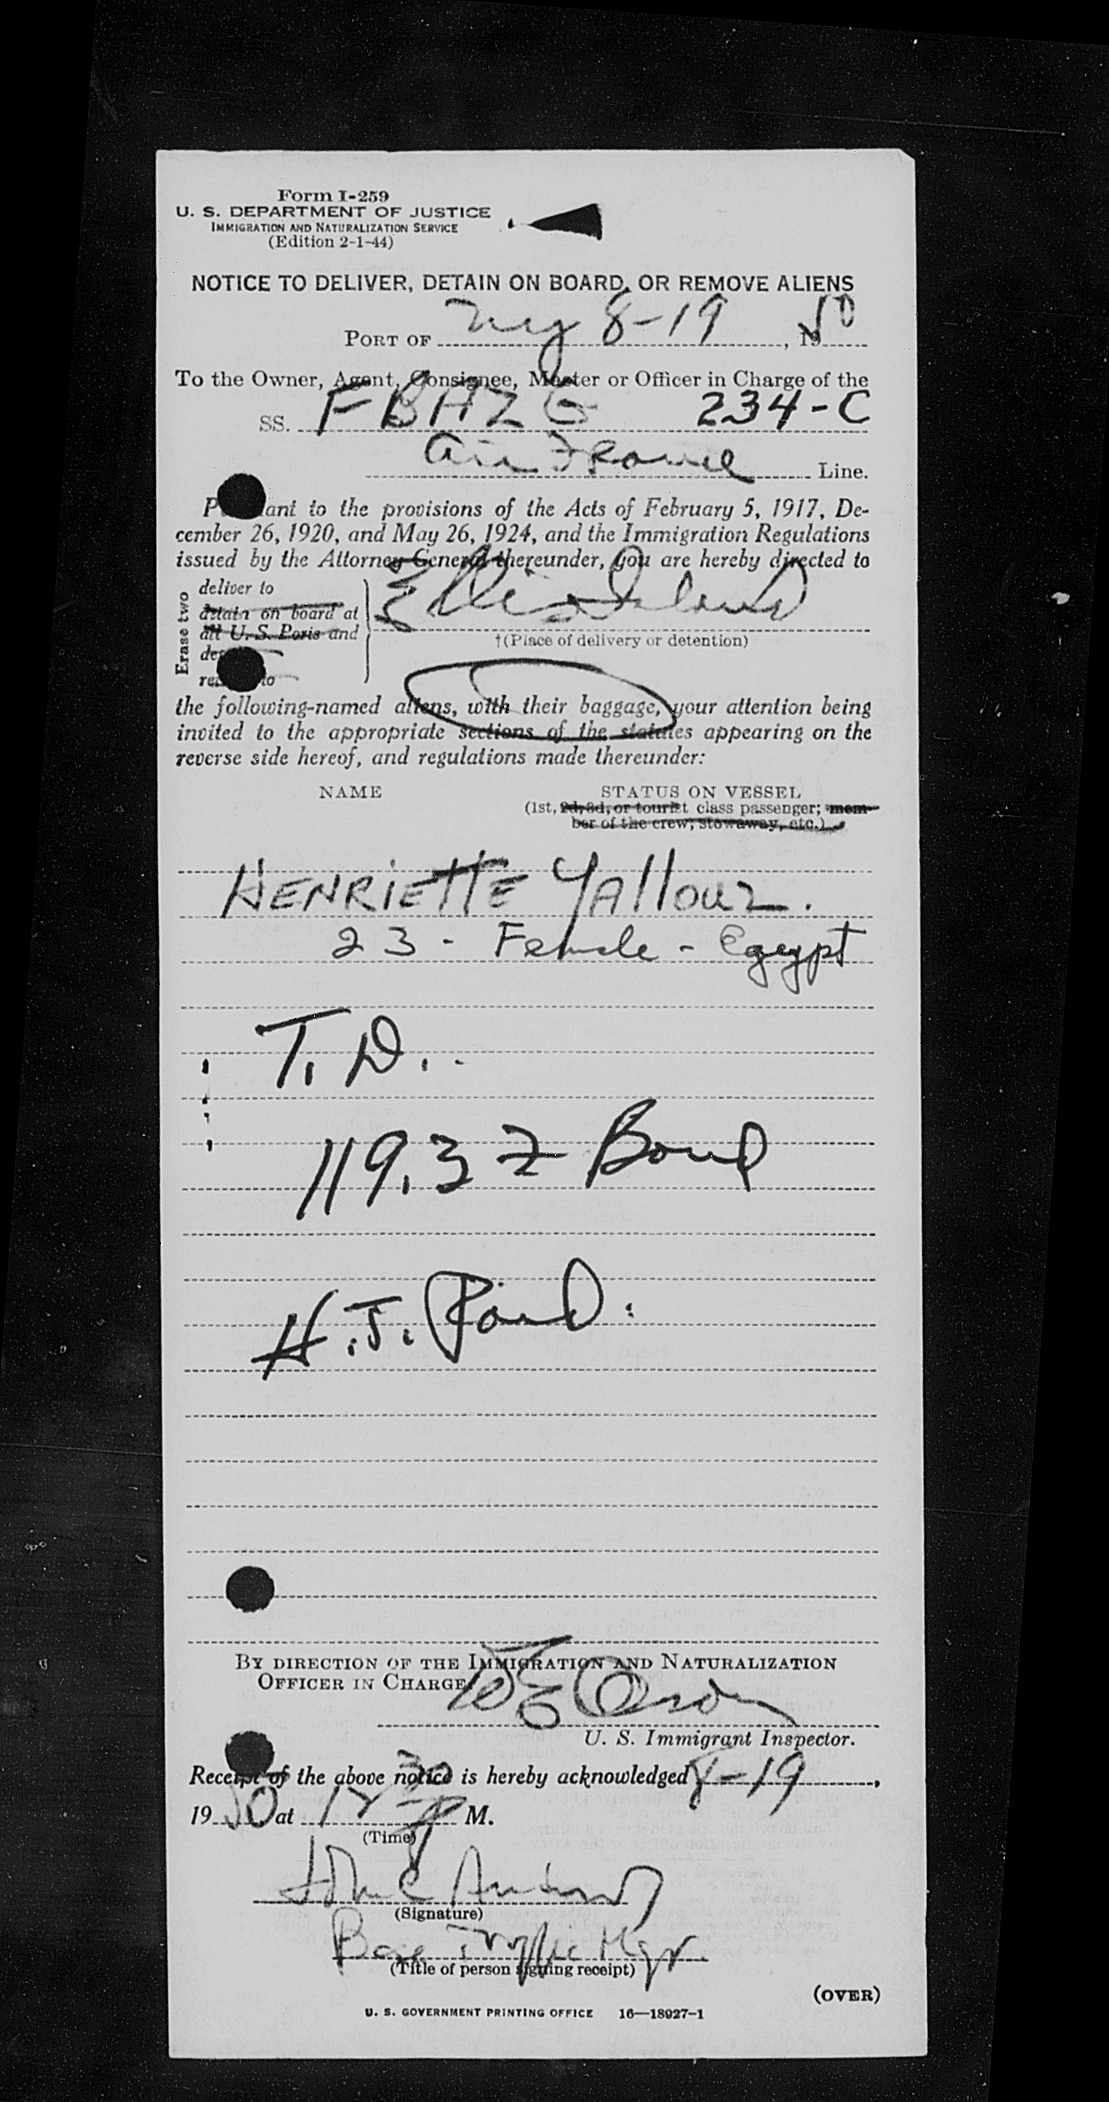 Form I-259
U. S. DEPARTMENT OF JUSTICE
IMMIGRATION AND NATURALIZATION SERVICE
(Edition 2-1-44)
NOTICE TO DELIVER, DETAIN ON BOARD, OR REMOVE ALIENS
PORT OF NY 8-19, 1950
To the Owner, Agent, Consignee, Master or Officer in Charge of the
SS. FBAZG 234-C
Air France Line.
P ant to the provisions of the Acts of February 5, 1917, De-
cember 26, 1920, and May 26, 1924, and the Immigration Regulations
issued by the Attorney General thereunder, you are hereby directed to
Erase two
deliver to
detain on board at
all U. S. Ports and
de
re to
Ellis Island
†(Place of delivery or detention)
the following-named aliens, with their baggage, your attention being
invited to the appropriate sections of the statutes appearing on the
reverse side hereof, and regulations made thereunder:
NAME STATUS ON VESSEL
(1st, 2d, 3d, or tourist class passenger; mem-
ber of the crew; stowaway, etc.)
HENRIETTE YAllouz.
23 - Female - Egypt
T. D.
119.3 Z Bond
H. J. Bond.
BY DIRECTION OF THE IMMIGRATION AND NATURALIZATION
OFFICER IN CHARGE
U. S. Immigrant Inspector.
Receipt of the above notice is hereby acknowledged 8-19,
1950 at 12 30 P M.
(Time)
John C
(Signature)
Base Traffic Mgr.
(Title of person signing receipt)
(OVER)
U. S. GOVERNMENT PRINTING OFFICE 16—18927-1